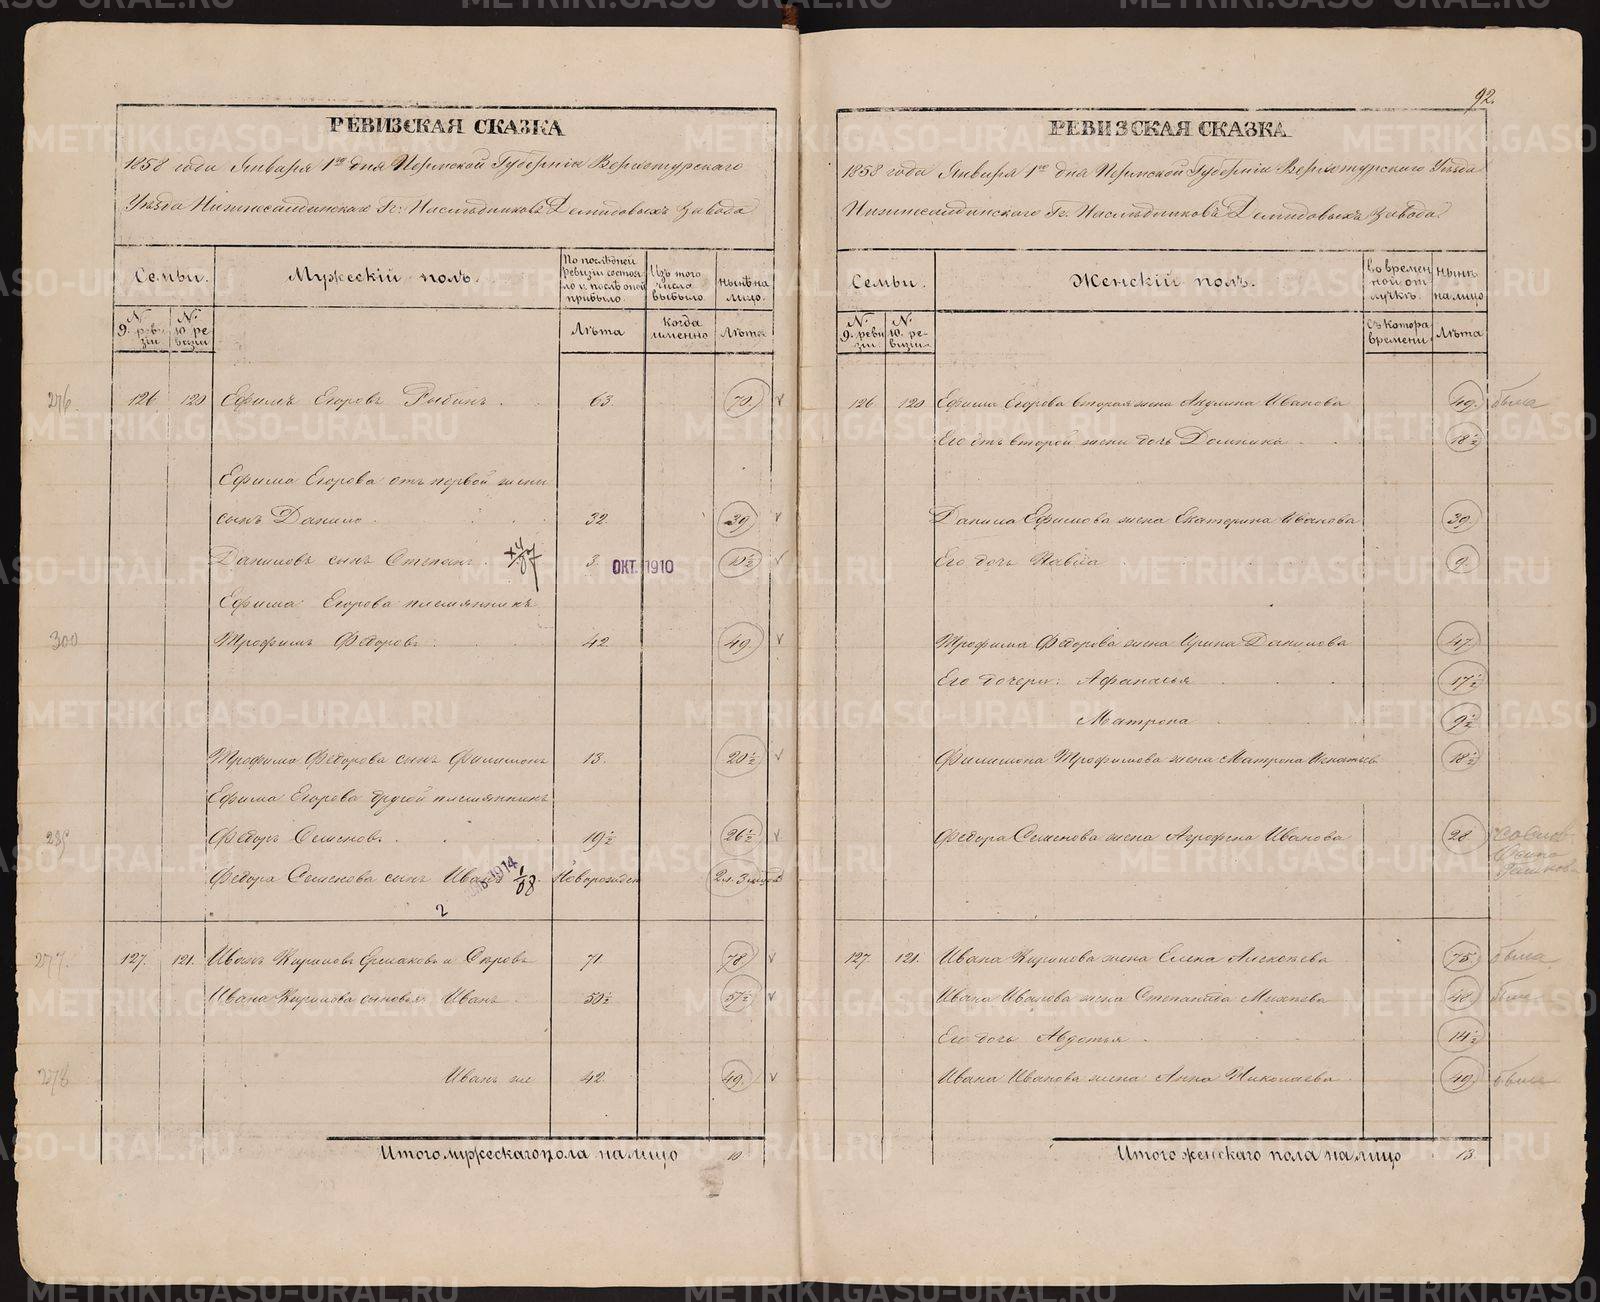 92.
РЕВИЗСКАЯ СКАЗКА
1858 года Января 1го дня Пермской Губерніи Верхотурскаго
Уѣзда Нижнесалдинскаго Гг. Наслѣдниковъ Демидовыхъ Завода
Семьи.
Мужескій полъ.
По послѣдней ревизіи состояло и послѣ оной прибыло
Изъ того числа выбыло
нынѣ на лицо.
№ 9. ревизіи
№ 10. ревизіи
Лѣта
когда именно
Лѣта
276. 126 120 Ефимъ Егоровъ Рыбинъ 63. 70
Ефима Егорова отъ первой жены
сынъ Данило 32. 39
Даниловъ сынъ Степанъ 3. ОКТ. 1910 10½
Ефима Егорова племянникъ
300 Трофимъ Ѳедоровъ 42 49
Трофима Ѳедорова сынъ Филимонъ 13. 20½
Ефима Егорова другой племянникъ
Ѳедоръ Семеновъ 19½ 26½
Ѳедора Семенова сынъ Иванъ 1/08 Новорожден 2 л. 3 мѣсяц
2
277. 127. 121. Иванъ Кириловъ 71 78
Ивана Кирилова сыновья: Иванъ 50½ 57½
278 Иванъ же 42 49.
Итого мужескаго пола на лицо 10
РЕВИЗСКАЯ СКАЗКА
1858 года Января 1го дня Пермской Губерніи Верхотурскаго Уѣзда
Нижнесалдинскаго Гг. Наслѣдниковъ Демидовыхъ Завода
Семьи.
Женскій полъ.
во временной отлучкѣ
нынѣ на лицо
№ 9. ревизіи
№ 10. ревизіи
съ котора времени
Лѣта
126 120 Ефима Егорова вторая жена Акулина Иванова 49. была
Его отъ второй жены дочь Домника 18½
Данила Ефимова жена Екатерина Иванова 39.
Его дочь 9
Трофима Ѳедорова жена Ирина Данилова 47.
Его дочери: Афанасья 17½
Матрона 9½
Филимона Трофимова жена Матрона Игнатьева 18½
Ѳедора Семенова жена Агрофена Иванова 28
127 121. Ивана Кирилова жена Елена Алексѣева 75. была
Ивана Иванова жена Степанида Михѣева 48. была
Его дочь Авдотья 14½
Ивана Иванова жена Анна Николаева 49 была
Итого женскаго пола на лицо 13
METRIKI.GASO-URAL.RU